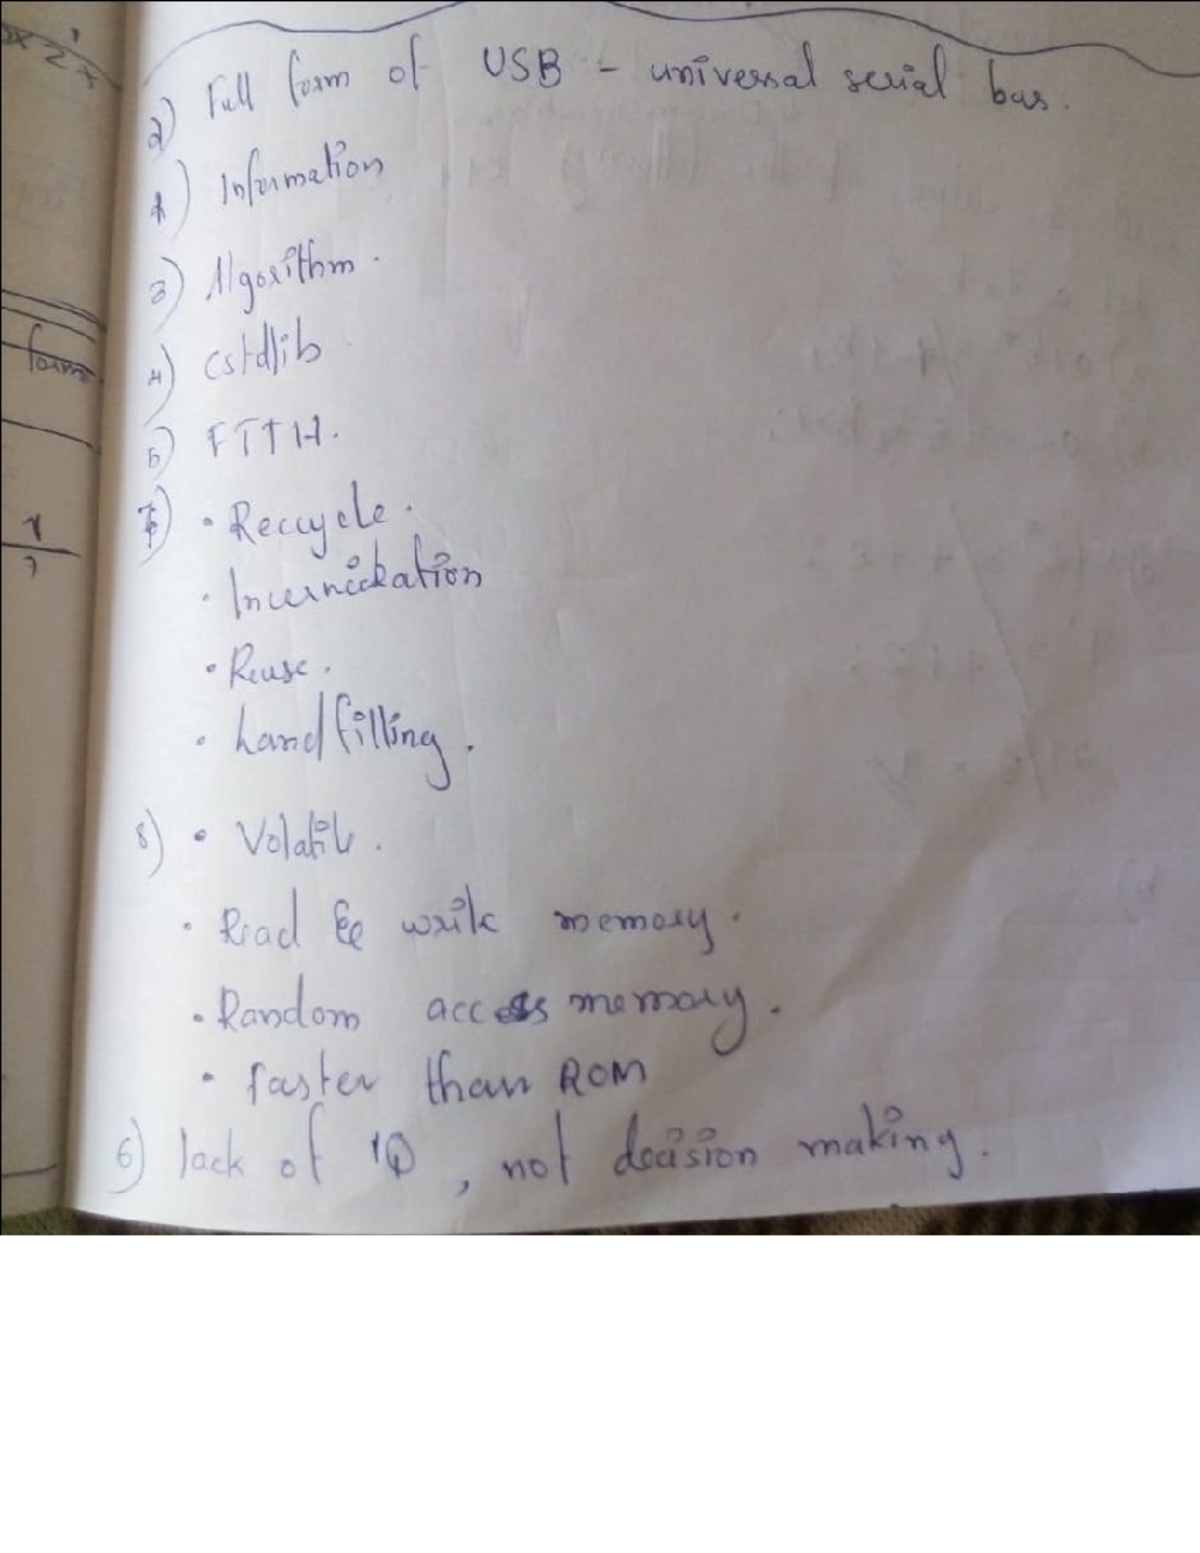 2) Full form of USB - universal serial bus.
1) Information
3) Algorithm.
4) cstdlib
5) FTTH.
7) • Reccycle.
•
• Reuse.
• Landfilling.
8) • Volatile.
• Read & write memory.
• Random access memory.
• faster than ROM
6) lack of IQ, not decision making.
form